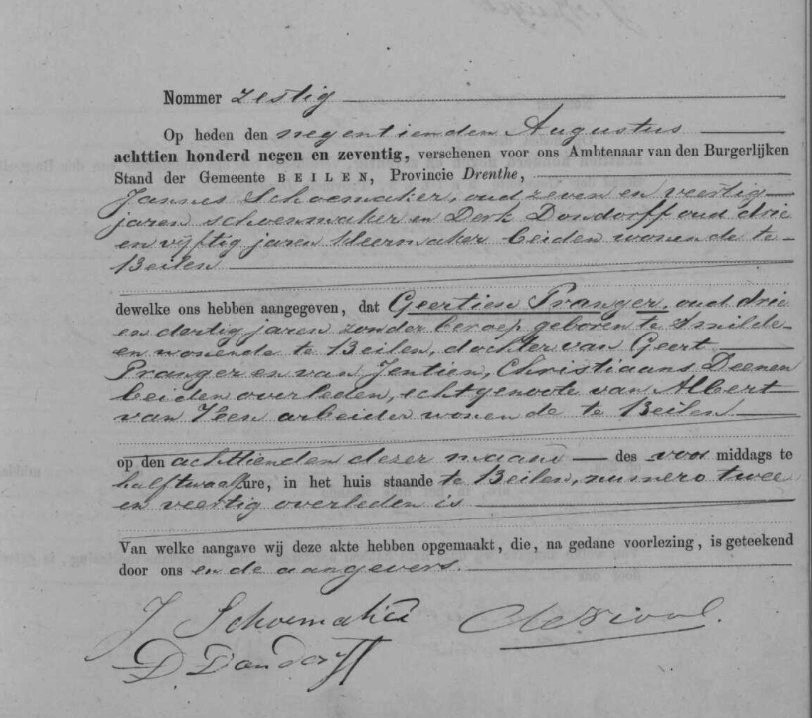 Nommer zestig
Op heden den negentienden Augustus
achttien honderd negen en zeventig, verschenen voor ons Ambtenaar van den Burgerlijken
Stand der Gemeente BEILEN, Provincie Drenthe,
Jannes Schoemaker, oud zeven en veertig
jaren schoenmaker en Derk Dondorff oud drie
en vijftig jaren kleermaker beiden wonende te
Beilen
dewelke ons hebben aangegeven, dat Geertien Pranger, oud drie
en dertig jaren zonder beroep geboren te Smilde
en wonende te Beilen, dochter van Geert
Pranger en van Jentien, Christiaans Deenen
beiden overleden, echtgenoote van Albert
van Veen arbeider wonende te Beilen
op den achttienden dezer maand des voor middags te
half twaalf ure, in het huis staande te Beilen, numero twee
en veertig overleden is
Van welke aangave wij deze akte hebben opgemaakt, die, na gedane voorlezing, is geteekend
door ons en de aangevers.
J Schoemaker
D. Dondorff